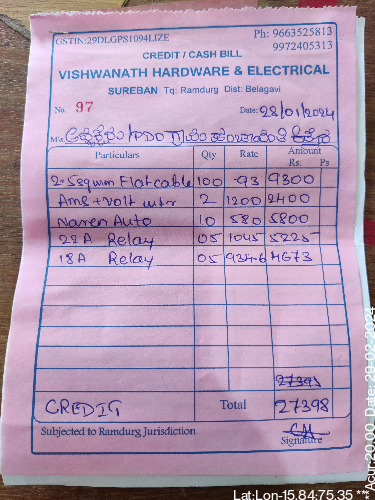 GSTIN:29DLGPS1094LIZE
Ph: 9663525813
9972405313
CREDIT / CASH BILL
VISHWANATH HARDWARE & ELECTRICAL
SUREBAN Tq: Ramdurg Dist: Belagavi
No. 97 Date: 28/01/2024
M/s
Particulars Qty Rate Amount
Rs. Ps
2.5sqmm Flat cable 100 93 9300
Am + Volt mtr 2 1200 2400
Naren Auto 10 580 5800
22A Relay 05 1045 5225
18A Relay 05 934.6 4673
27398
CREDIT Total 27398
Subjected to Ramdurg Jurisdiction
Signature
Lat:Lon-15.84:75.35 ***
Acur:20.00 Date: 29-02-2024